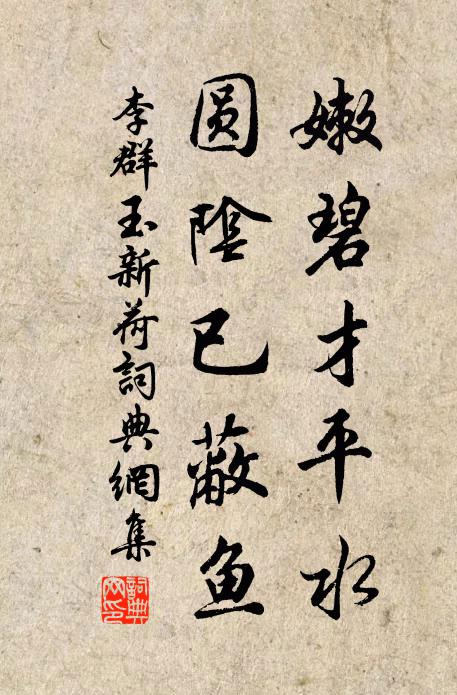 嫩碧才平水
圆陰已蔽鱼
李群玉新荷詞典網集
詞典网印